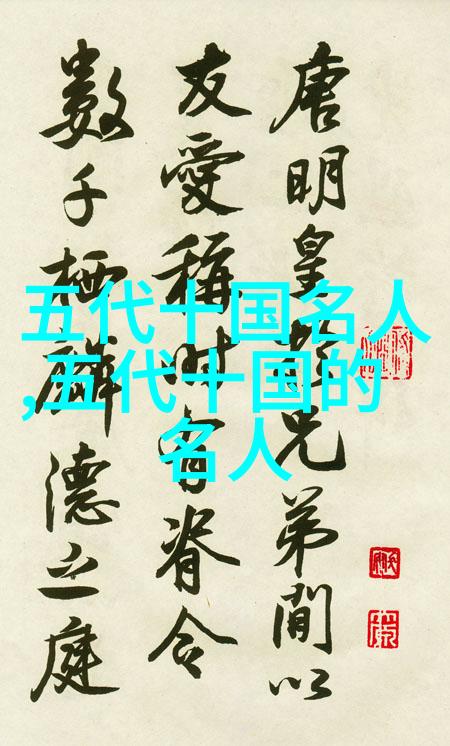 唐明皇兄弟間以
友愛稱時有脊令
數千栖麟德之庭
五代十国名人
,五代十国的
名人